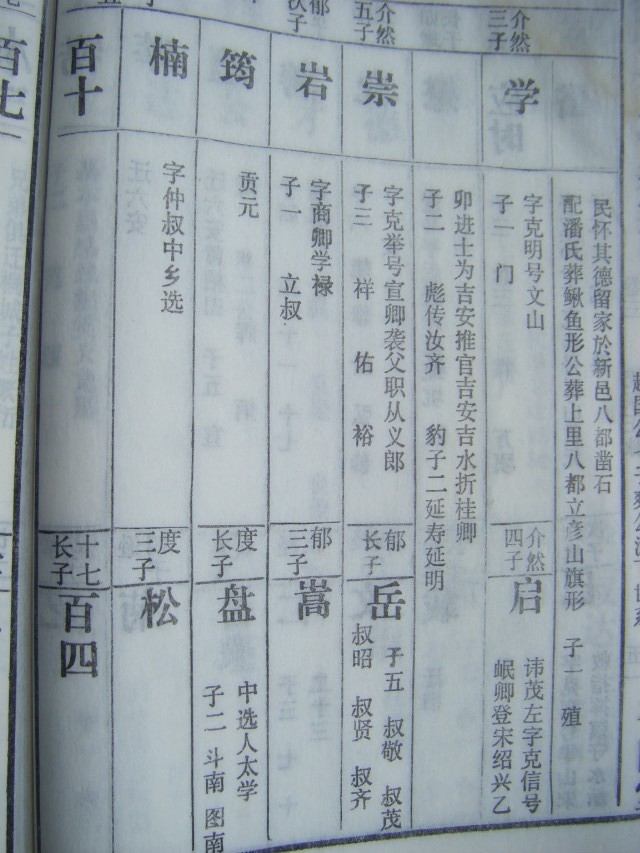 民怀其德留家於新邑八都凿石
配潘氏葬鳅鱼形公葬上里八都立彦山旗形 子一 殖
介然
三子
学
字克明号文山
子一 门
介然
四子
启
讳茂左字克信号
岷卿登宋绍兴乙
卯进士为吉安推官吉安吉水折桂卿
子二 彪传汝齐 豹子二延寿延明
介然
五子
崇
字克举号宣卿袭父职从义郎
子三 祥 佑 裕
郁
长子
岳
子五 叔敬 叔茂
叔昭 叔贤 叔齐
郁
次子
岩
字商卿学禄
子一 立叔
郁
三子
嵩
筠
贡元
度
长子
盘
中选人太学
子二 斗南 图南
楠
字仲叔中乡选
度
三子
松
百十
十七
长子
百四
百七